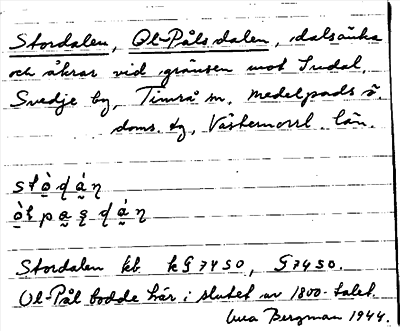 Stordalen, Ol-Pålsdalen, dalsänka
och åkrar vid gränsen mot Indal,
Svedje by, Timrå sn, Medelpads ö.
doms. tg, Västernorrl. län.
Stordalen kb. k G 7450, G 7450.
Ol-Pål bodde här i slutet av 1800-talet.
Bergman 1944.